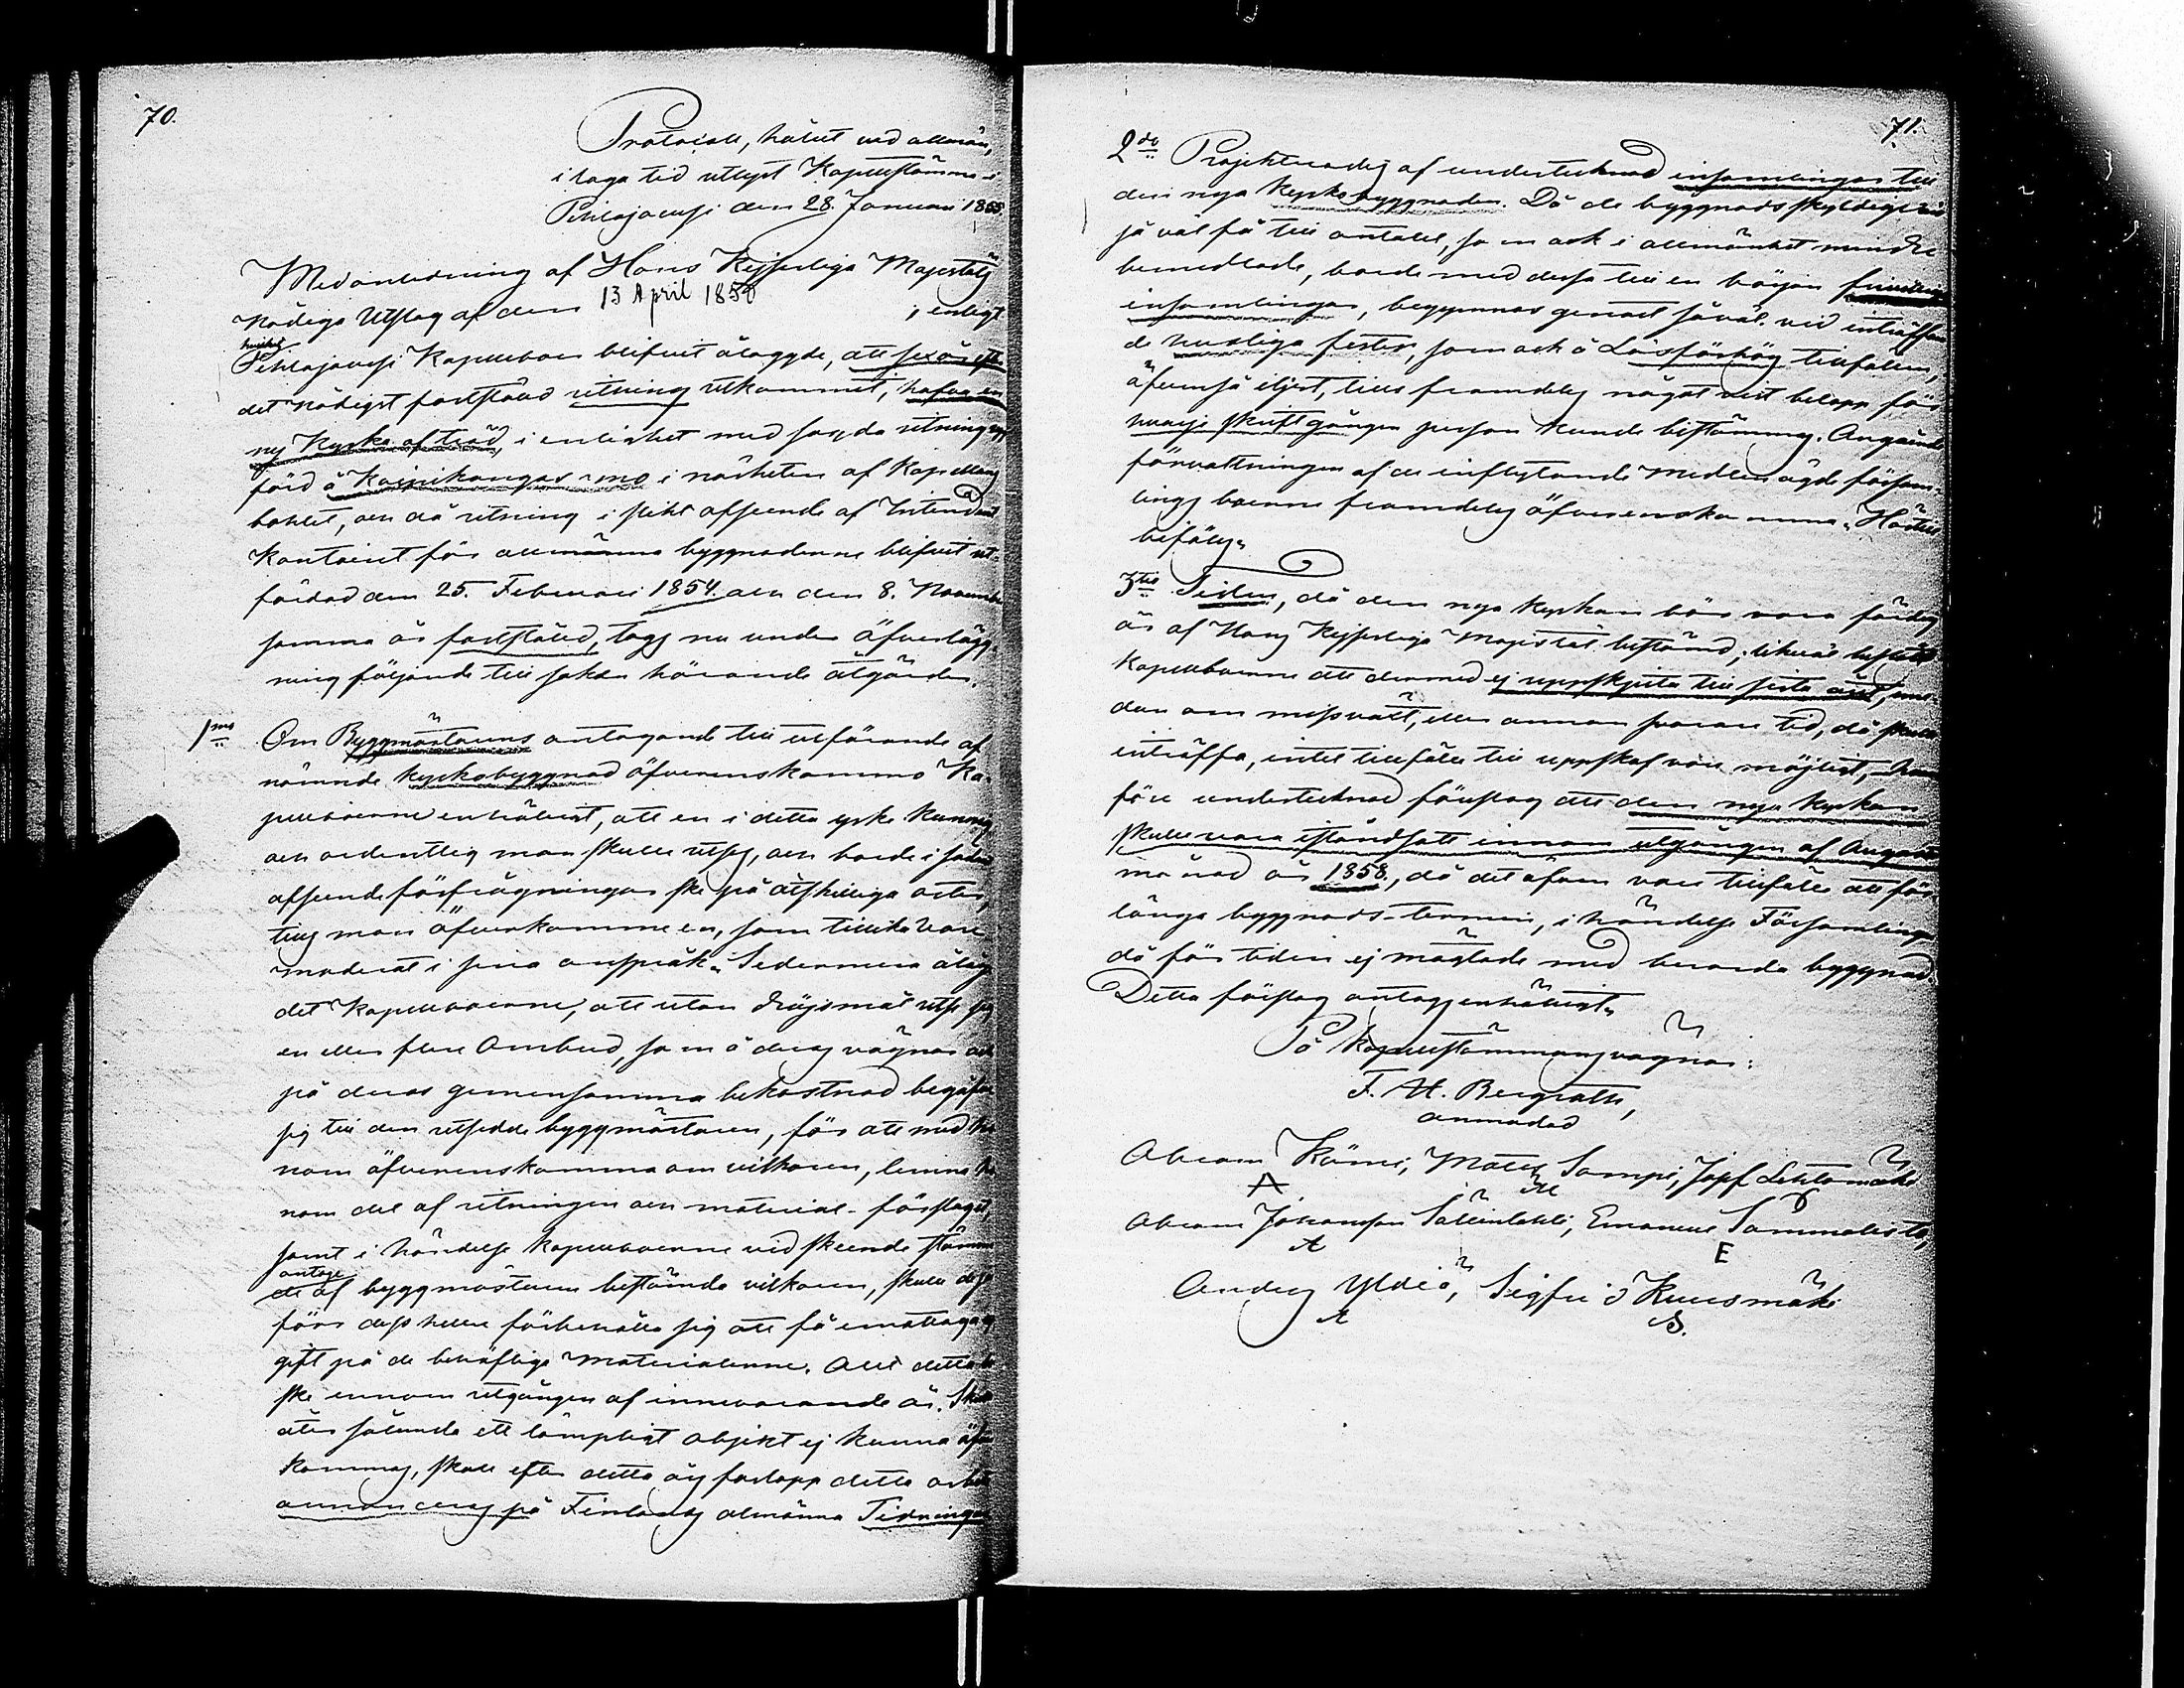 70.
Protocoll, hållit vid allmän,
i laga tid utlyst Kapellstämma i
Pihlajavesi den 28. Januari 1855.
Med anledning af Hans Kejserliga Majestäts
Nådiga Utslag af den 13 April 1850, enligt
hvilket
Pihlajavesi Kapellboer blifvit ålagde, att sex år efter
det nådigst fastställd ritning utkommit, hafva en
ny Kyrka af träd, i enlighet med sagda ritning upp-
förd å Kainikangas mo i närheten af Kapellans
bohlet, och då ritning i slikt afseende af Intendents
Kontoiret för allmänna byggnaderne blifvit ut-
färdad den 25. Februari 1854 och den 8. November
samma år fastställd, togs nu under öfverlägg-
ning följande till saken hörande åtgärder.
1mo Om Byggmästarens antagande till utförande af
nämnde kyrkobyggnad öfverenskommo Ka-
pellboerne enhälligt, att en i detta yrke kunnig
och ordentlig man skulle utses, och borde i sådant
afseende förfrågningar ske på åtskilliga orter,
tills man öfverkomme en, som tillika vore
moderat i sina anspråk. Sedermera ålåge
det Kapellboerne, att utan dröjsmål utse sig
en eller flere Ombud, som å deras vägnar och
på deras gemensamma bekostnad begåfve
sig till den utsedde byggmästaren, för att med ho-
nom öfverenskomma om vilkoren, lemna ho-
nom del af ritningen och material-förslaget,
samt i händelse Kapellboerne vid skeende stämma
antoge
de af byggmästaren bestämda vilkoren, skulle desse
förr dess hellre förbehålla sig att få emottaga upp-
gift på de behöfliga materialierne. Allt detta bör
ske innom utgången af innevarande år. Skulle
åter sålunda ett lämpligt objekt ej kunna öfver-
kommas, skall efter detta års förlopp detta arbete
annonceras på Finlands allmänna Tidningar
71.
2do Projekterades af undertecknad insamlingar till
den nya Kyrkobyggnaden. Då de byggnadsskyldige äro
så väl få till antalet, som ock i allmänhet mindre
bemedlade, borde med dessa till en början frivilliga
insamlingar, begynnas genast såväl vid inträffan-
de husliga fester, som ock å Läsförhörs tillfällen,
äfvenså eljest, tills framdeles något visst belopp för
hvarje skriftgången person kunde bestämmas. Angående
förvaltningen af de inflytande medlen ägde försam-
lings boerne framdeles öfverenskomma.
bifölls.
3tio Tiden, då den nya kyrkan bör vara färdig
är af Hans Kejserliga Majestät bestämd; likväl
Kapellboerne att dermed ej uppskjuta till sista året,
dan om missväxt, eller annan svårare tid, då skulle
inträffa, intet tillfälle till uppskof vore möjligt,
före undertecknad förslag att den nya kyrkan
skulle vara iståndsatt innan utgången af Augusti
månad år 1858., då det äfven vore tillfälle att för-
länga byggnads-terminen, i händelse Församlingen
då för tiden ej mäktade med berörda byggnad.
Detta förslag antogs enhälligt.
På Kapellstämmans vägnar:
F. H. Bergroth,
anmodad
Abram Kömi, Matts Sampi, Josef Lehtomäki
A M
Abram Johansson Sällinlahti, Emanuel Sammalisto,
A E
Anders Yldiö, Sigfrid Kuusmäki
A S.